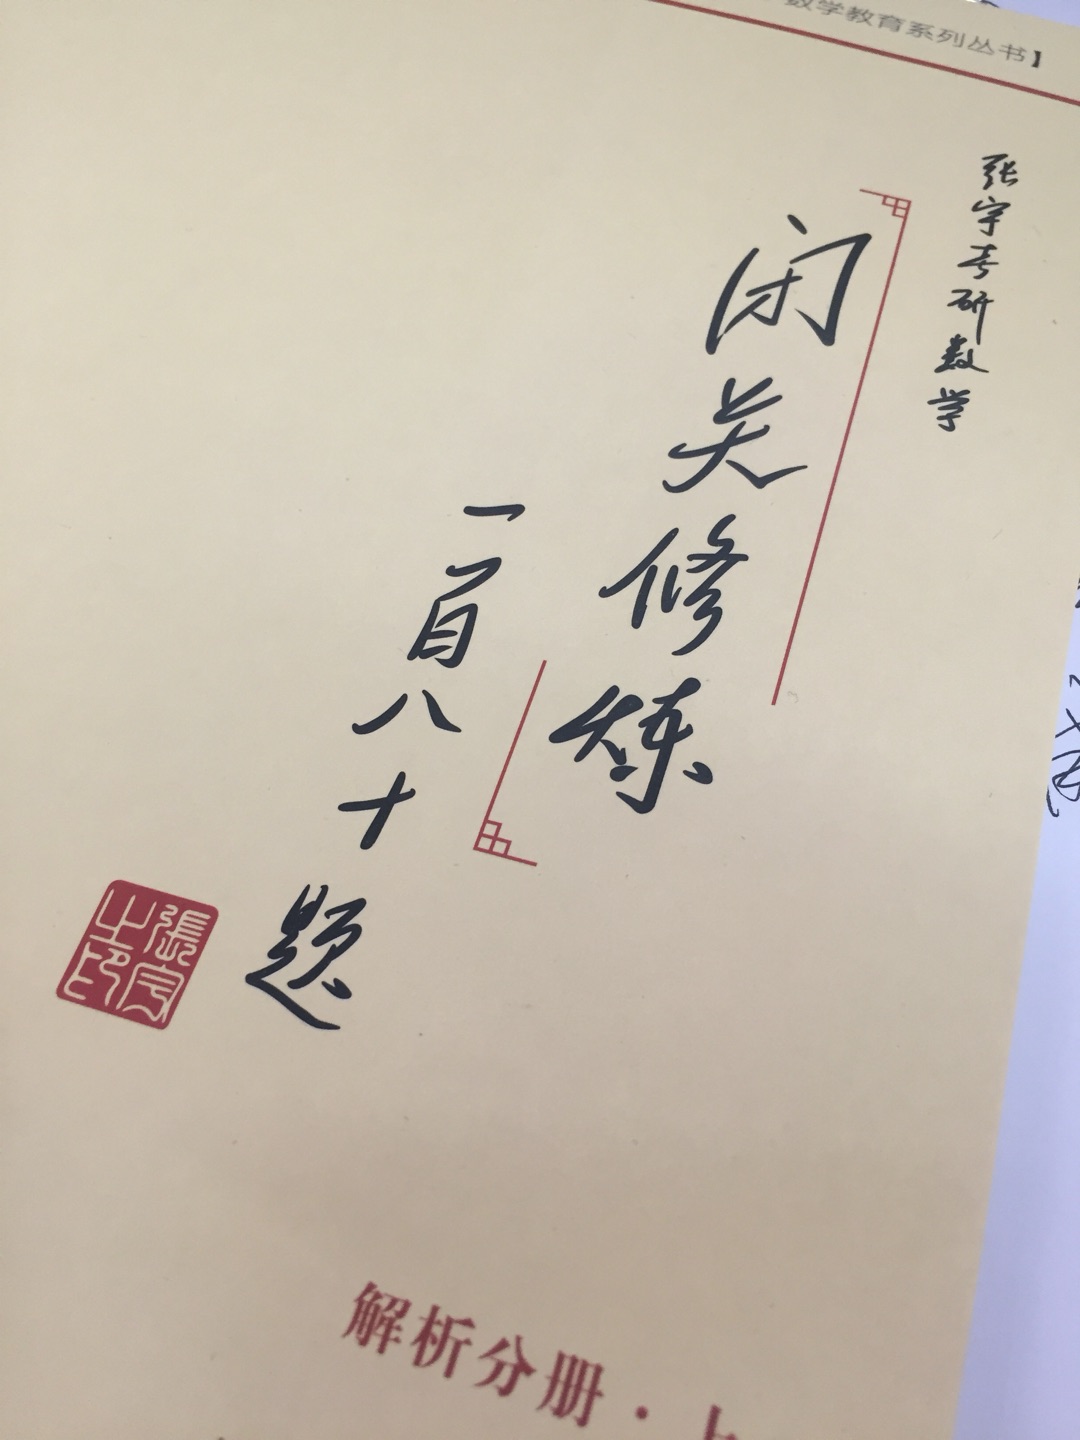 数学教育系列丛书】
张宇考研数学
闭关修炼
一百八十题
張宇之印
解析分册·上